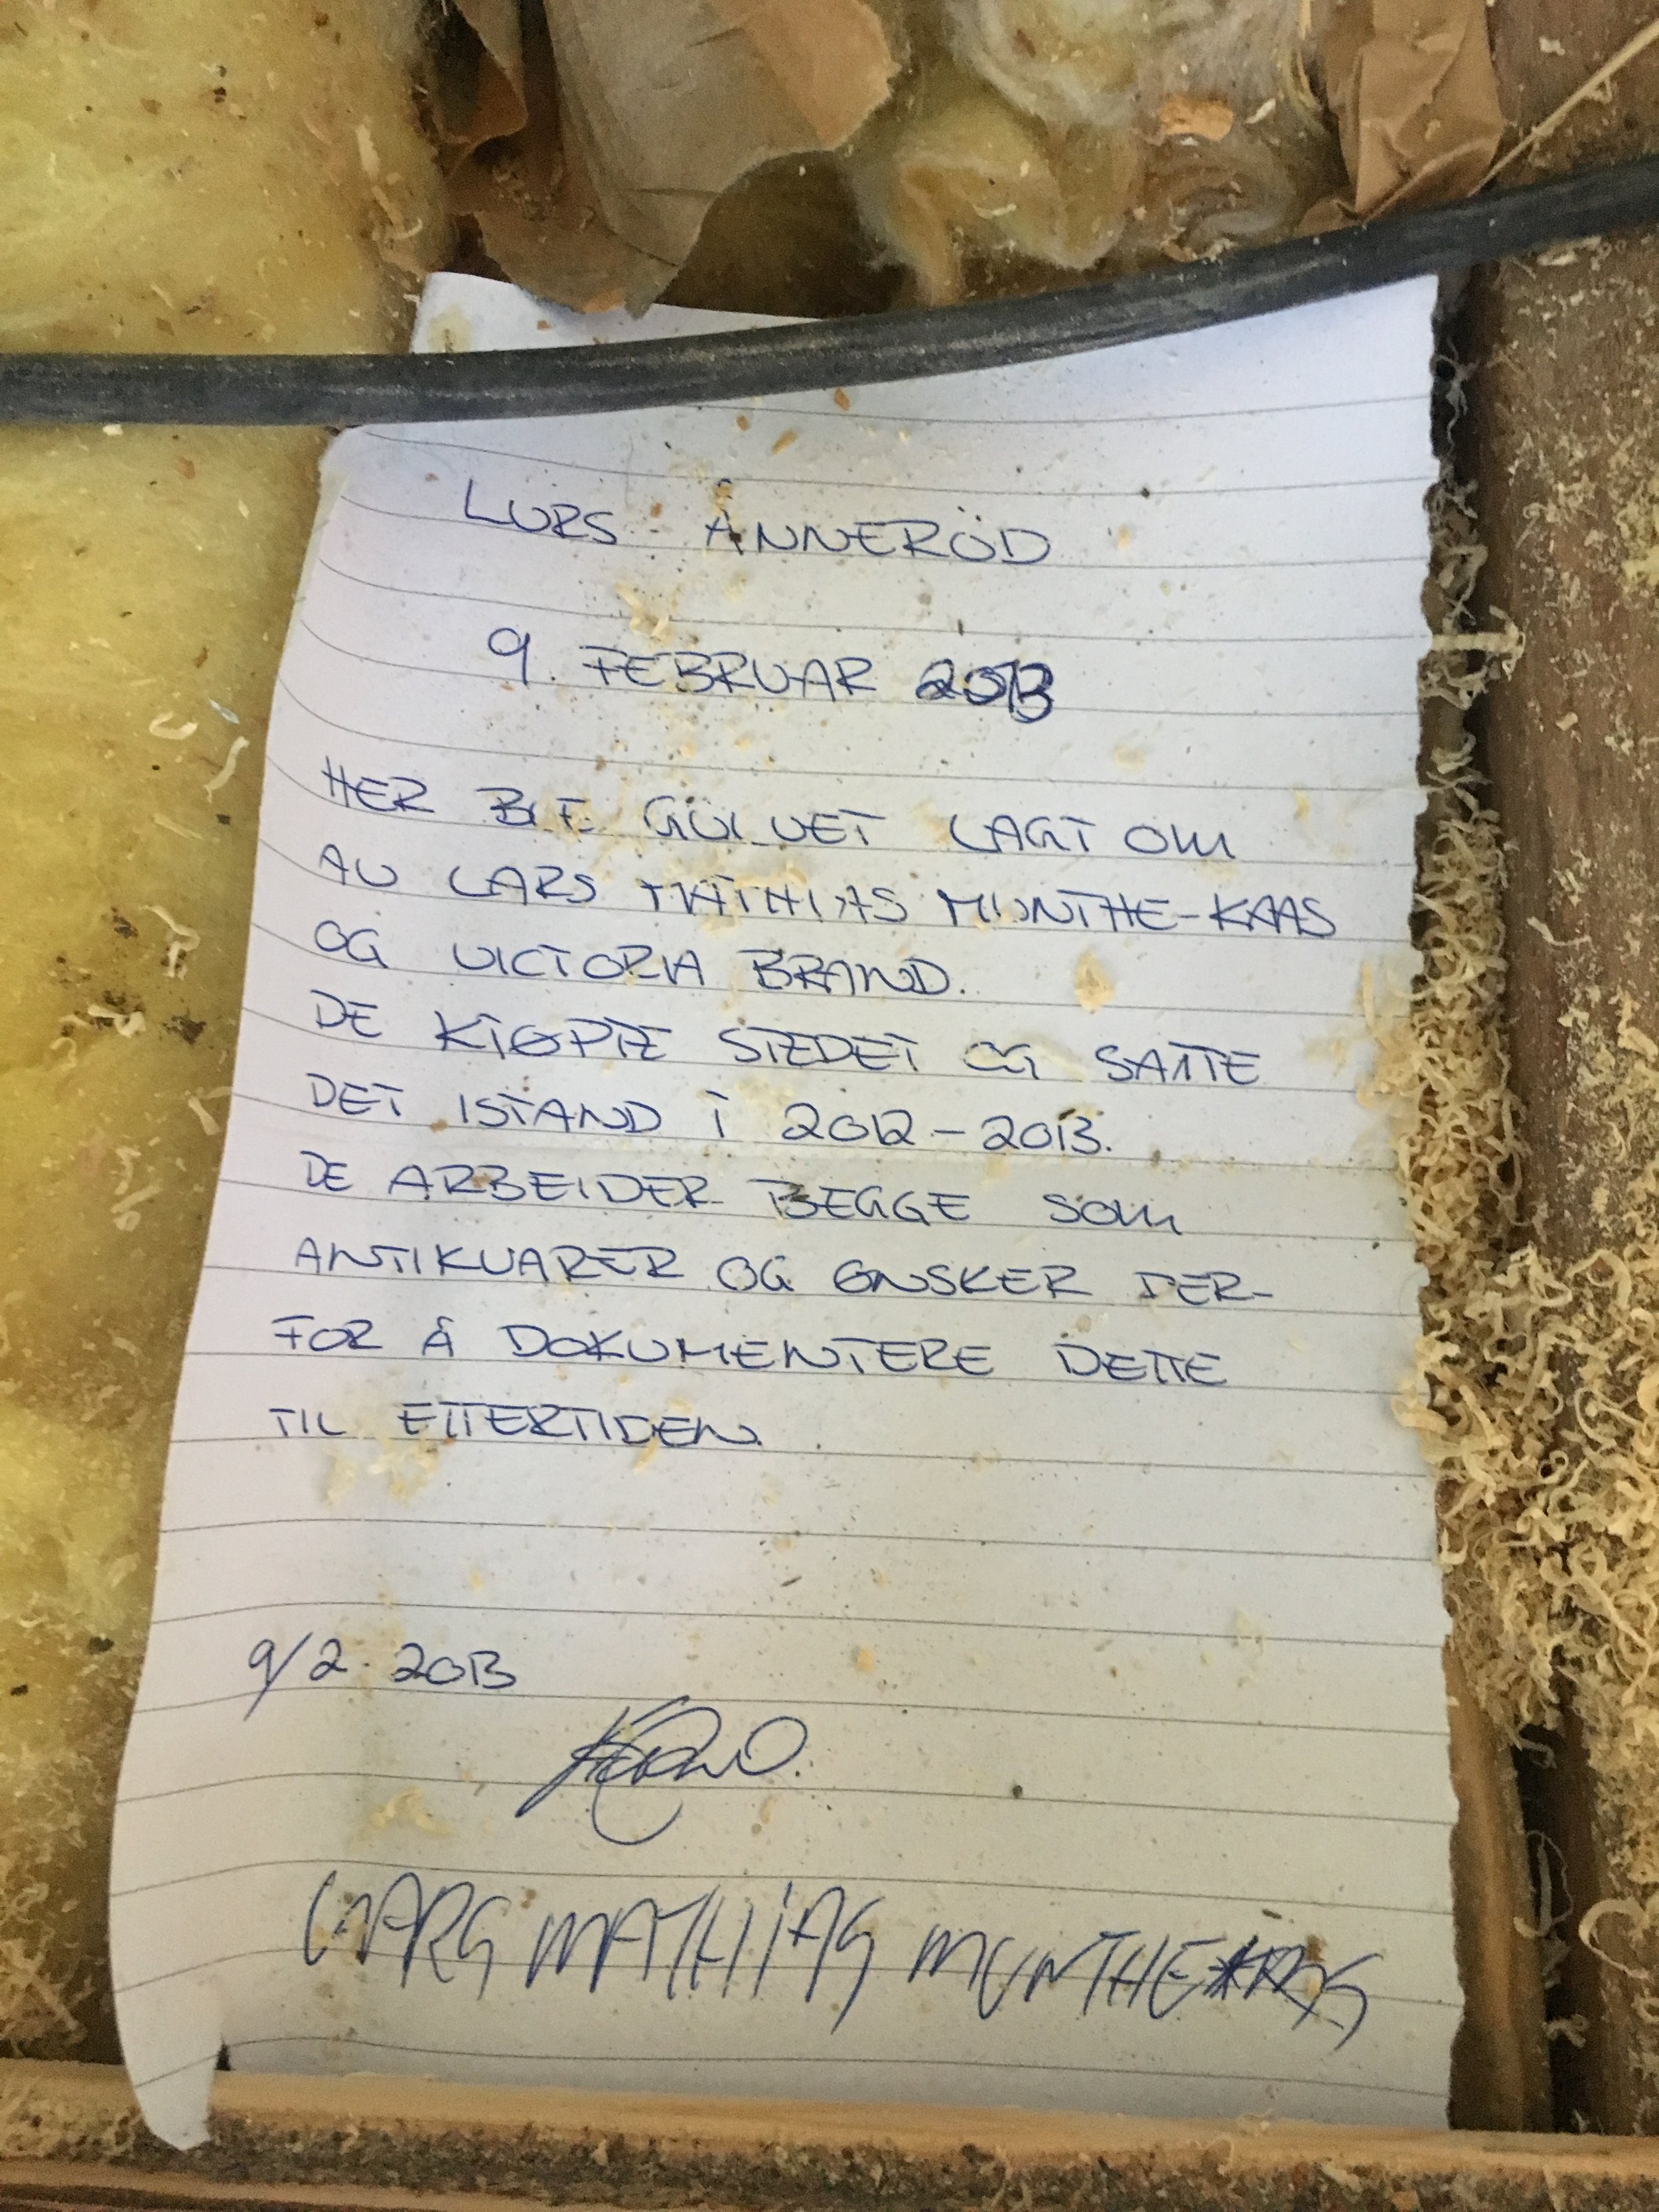 LURS - ÅNNERÖD
9. FEBRUAR 2013
HER BLE GULVET LAGT OM
AV LARS MATHIAS MUNTHE-KAAS
OG VICTORIA BRAND.
DE KJØPTE STEDET OG SATTE
DET ISTAND I 2012-2013.
DE ARBEIDER BEGGE SOM
ANTIKVARER OG ØNSKER DER-
FOR Å DOKUMENTERE DETTE
TIL ETTERTIDEN.
9/2. 2013
LARS MATHIAS MUNTHE-KAAS